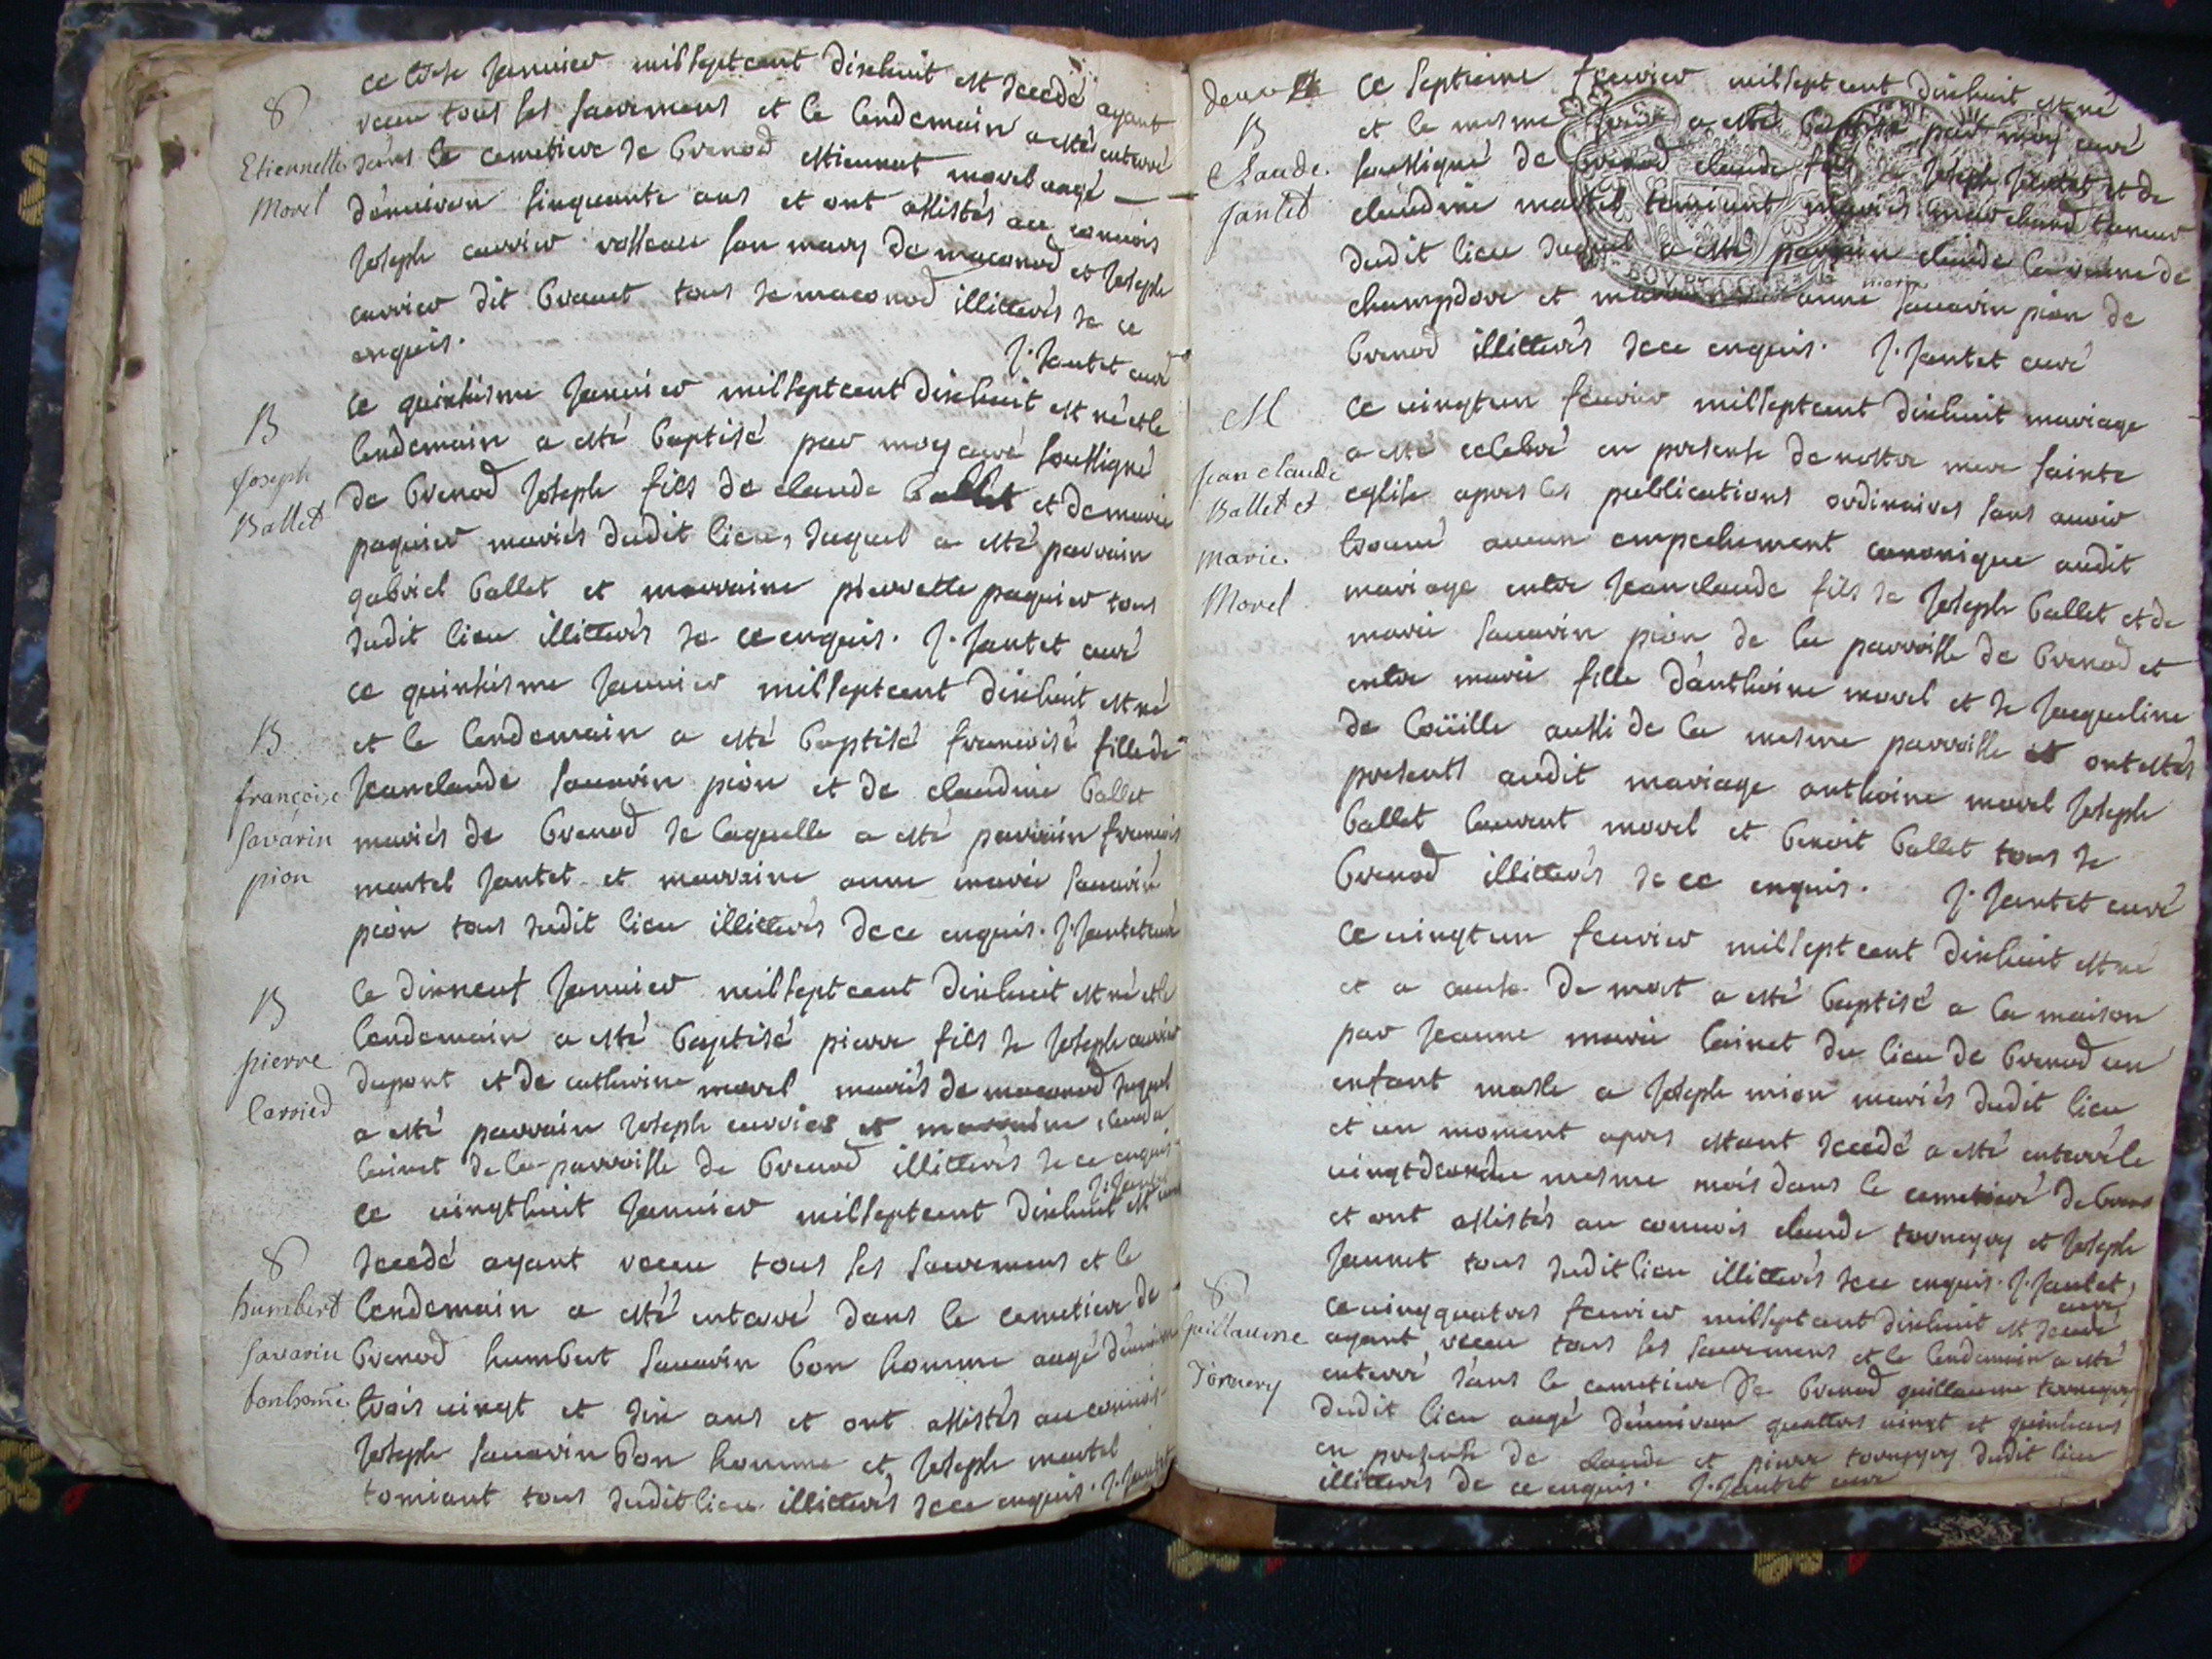 8
Etiennette
Morel
ce treise janvier mil sept cent dixhuit est decedé ayant
receu tous ses sacremens et le lendemain a esté enterré
dans le cemetiere de brenod estiennet morel angé —
d'énuiron sinquante ans et ont assistés au conuois
joseph carrier rosseau son mary de maconod et joseph
carrier dit brunet tous de maconod illitterés de ce
enquis.
J. Jantet curé
B
Joseph
Ballet
le quinzisme januier mil sept cent dixhuit est né et le
lendemain a esté baptisé par moy curé soussigné
de brenod joseph fils de claude ballet et de marie
paquier mariés dudit lieu, duquel a esté parrain
gabriel ballet et marraine pierrette paquier tous
dudit lieu illitterés de ce enquis. J. Jantet curé
B
françoise
Savarin
pion
ce quinzisme januier mil sept cent dixhuit est né
et le lendemain a esté baptisé francoise fille de
jean claude sauarin pion et de claudine ballet
mariés de brenod de laquelle a esté parrain francois
martel jantet et marraine anne marie sauarin
pion tous dudit lieu illitterés de ce enquis. J. Jantet curé
B
pierre
Carrier
le dixneuf januier mil sept cent dixhuit est né et le
lendemain a esté baptisé pierre fils de joseph carrier
dupont et de catherine morel mariés de maconod duquel
a esté parrain joseph carrier et marraine clauda
lainet de la parroisse de brenod illitterés de ce enquis
J. Jantet
8
humbert
Savarin
bonhome
ce uingthuit januier mil sept cent dixhuit est
decedé ayant receu tous ses sacremens et le
lendemain a esté enterré dans le cemetiere de
brenod humbert sauarin bon homme angé d'énuiron
trois uingt et dix ans et ont assistés au conuois
joseph sauarin bon homme et joseph martel
tomiant tous dudit lieu illitterés de ce enquis. J. Jantet
deux
B
Claude
Jantet
ce septieme feurier mil sept cent dixhuit est né
et le mesme a esté baptisé par moy curé
soussigné de brenod claude fils de joseph jantet et de
claudine martel tomiant mariés marchand tanneur
dudit lieu duquel a esté parrain claude de
champdor et marraine anne marie sauarin pion de
brenod illitterés de ce enquis. J. Jantet curé
M
jean claude
Ballet et
marie
Morel
ce uingt un feurier mil sept cent dixhuit mariage
a esté celebré en presense de nostre mere sainte
eglise apres les publications ordinaires sans auoir
trouué aucun empechement canonique audit
mariage entre jean claude fils de joseph ballet et de
marie sauarin pion de la parroisse de brenod et
entre marie fille d'anthoine morel et de jacqueline
de loüille aussi de la mesme parroisse et ont estés
presents audit mariage anthoine morel joseph
ballet laurent morel et benoit ballet tous de
brenod illitterés de ce enquis. J. Jantet curé
ce uingt un feurier mil sept cent dixhuit est né
et a cause de mort a esté baptisé a la maison
par jeanne marie lainet du lieu de brenod un
enfant masle a joseph mion mariés dudit lieu
et un moment apres estant decedé a esté enterré le
uingt deux du mesme mois dans le cemetiere de brenod
et ont assistés au conuois claude tornery et joseph
jannet tous dudit lieu illitterés de ce enquis. J. Jantet
curé
8
Guillaume
Tornery
ce uingquatres feurier mil sept cent dixhuit est decedé
ayant receu tous ses sacremens et le lendemain a esté
enterré dans le cemetiere de brenod guillaume tornery
dudit lieu angé d'énuiron quattres uingt et quinze ans
en presense de claude et pierre tornery dudit lieu
illitterés de ce enquis. J. Jantet curé